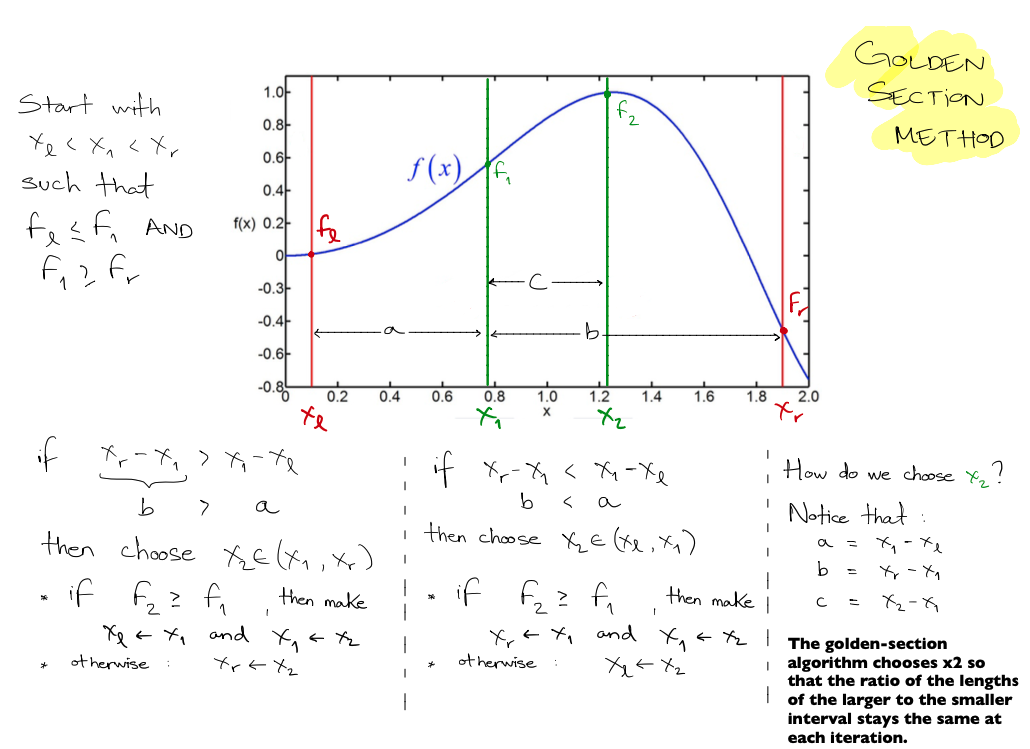 GOLDEN
SECTION
METHOD
Start with
x_l < x_1 < x_r
such that
f_l ≤ f_1 AND
f_1 ≥ f_r
f(x)
1.0
0.8
0.6
0.4
0.2
0
-0.3
-0.4
-0.6
-0.8
f(x)
f_l
f_1
f_2
f_r
c
a
b
0 0.2 0.4 0.6 0.8 1.0 1.2 1.4 1.6 1.8 2.0
x
x_l x_1 x_2 x_r
if x_r - x_1 > x_1 - x_l
b > a
then choose x_2 ∈ (x_1, x_r)
* if f_2 ≥ f_1, then make
x_l ← x_1 and x_1 ← x_2
* otherwise : x_r ← x_2
if x_r - x_1 < x_1 - x_l
b < a
then choose x_2 ∈ (x_l, x_1)
* if f_2 ≥ f_1, then make
x_r ← x_1 and x_1 ← x_2
* otherwise : x_l ← x_2
How do we choose x_2?
Notice that :
a = x_1 - x_l
b = x_r - x_1
c = x_2 - x_1
The golden-section
algorithm chooses x2 so
that the ratio of the lengths
of the larger to the smaller
interval stays the same at
each iteration.